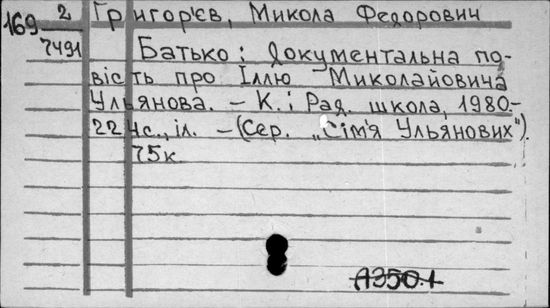 169 2 Григор'єв, Микола Федорович
7491 Батько: документальна по-
вість про Іллю Миколайовича
Ульянова. – К.: Рад. школа, 1980-
224с., іл. – (Сер. „Сім'я Ульянових")
75к
А350.1